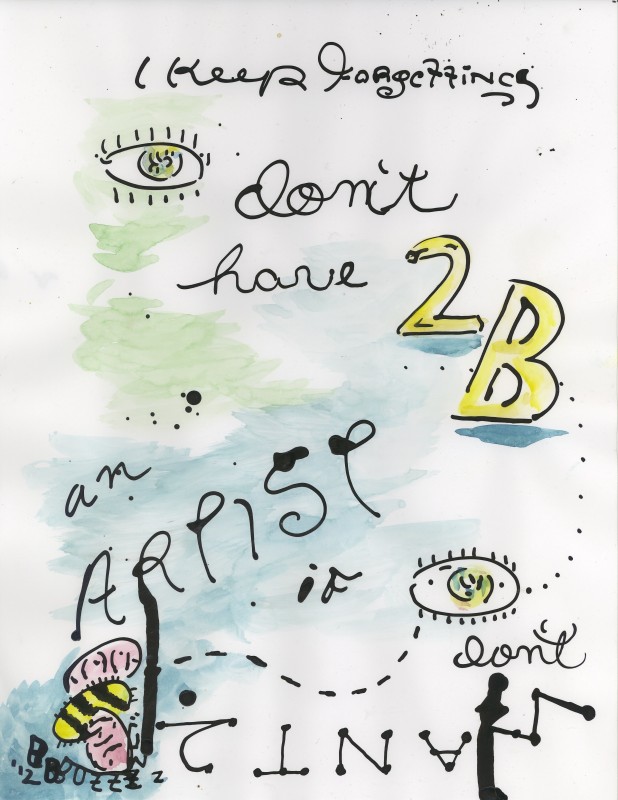 I Keep Forgetting
don't
have 2B
an
ARTIST if
don't
WANT 2
'12 Buzzzz z